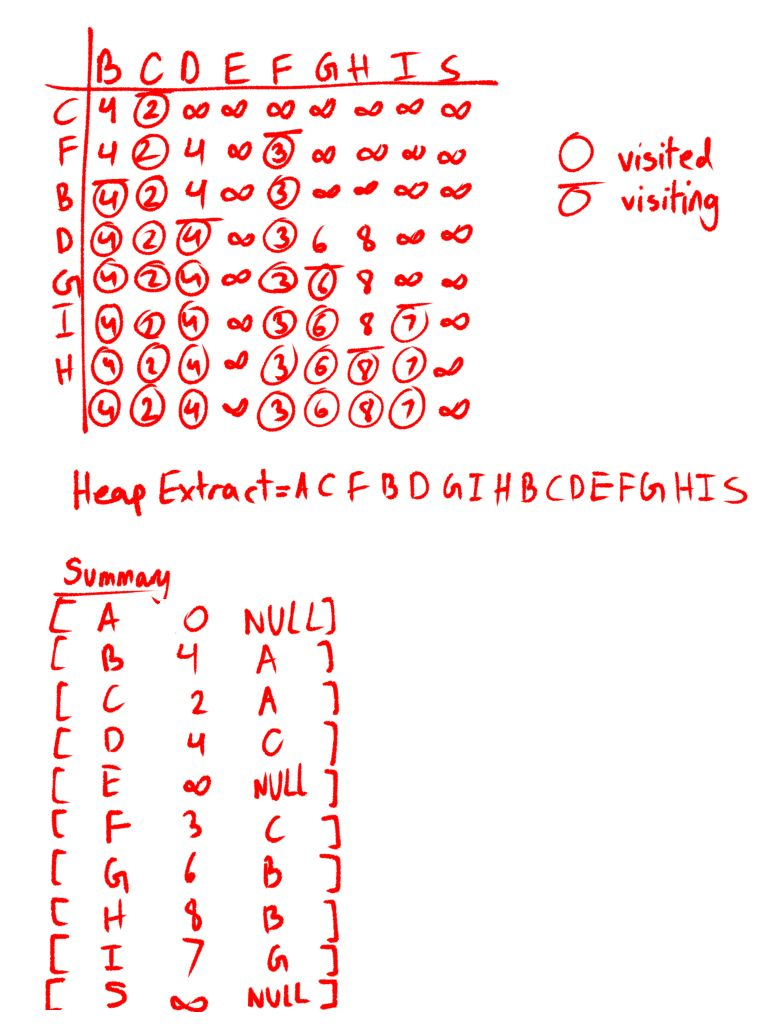 B C D E F G H I S
C 4 2 ∞ ∞ ∞ ∞ ∞ ∞ ∞
F 4 2 4 ∞ 3 ∞ ∞ ∞ ∞
B 4 2 4 ∞ 3 ∞ ∞ ∞ ∞
D 4 2 4 ∞ 3 6 8 ∞ ∞
G 4 2 4 ∞ 3 6 8 ∞ ∞
I 4 2 4 ∞ 3 6 8 7 ∞
H 4 2 4 ∞ 3 6 8 7 ∞
4 2 4 ∞ 3 6 8 7 ∞
visited
visiting
Heap Extract=A C F B D G I H B C D E F G H I S
Summary
[ A 0 NULL]
[ B 4 A ]
[ C 2 A ]
[ D 4 C ]
[ E ∞ NULL ]
[ F 3 C ]
[ G 6 B ]
[ H 8 B ]
[ I 7 G ]
[ S ∞ NULL ]